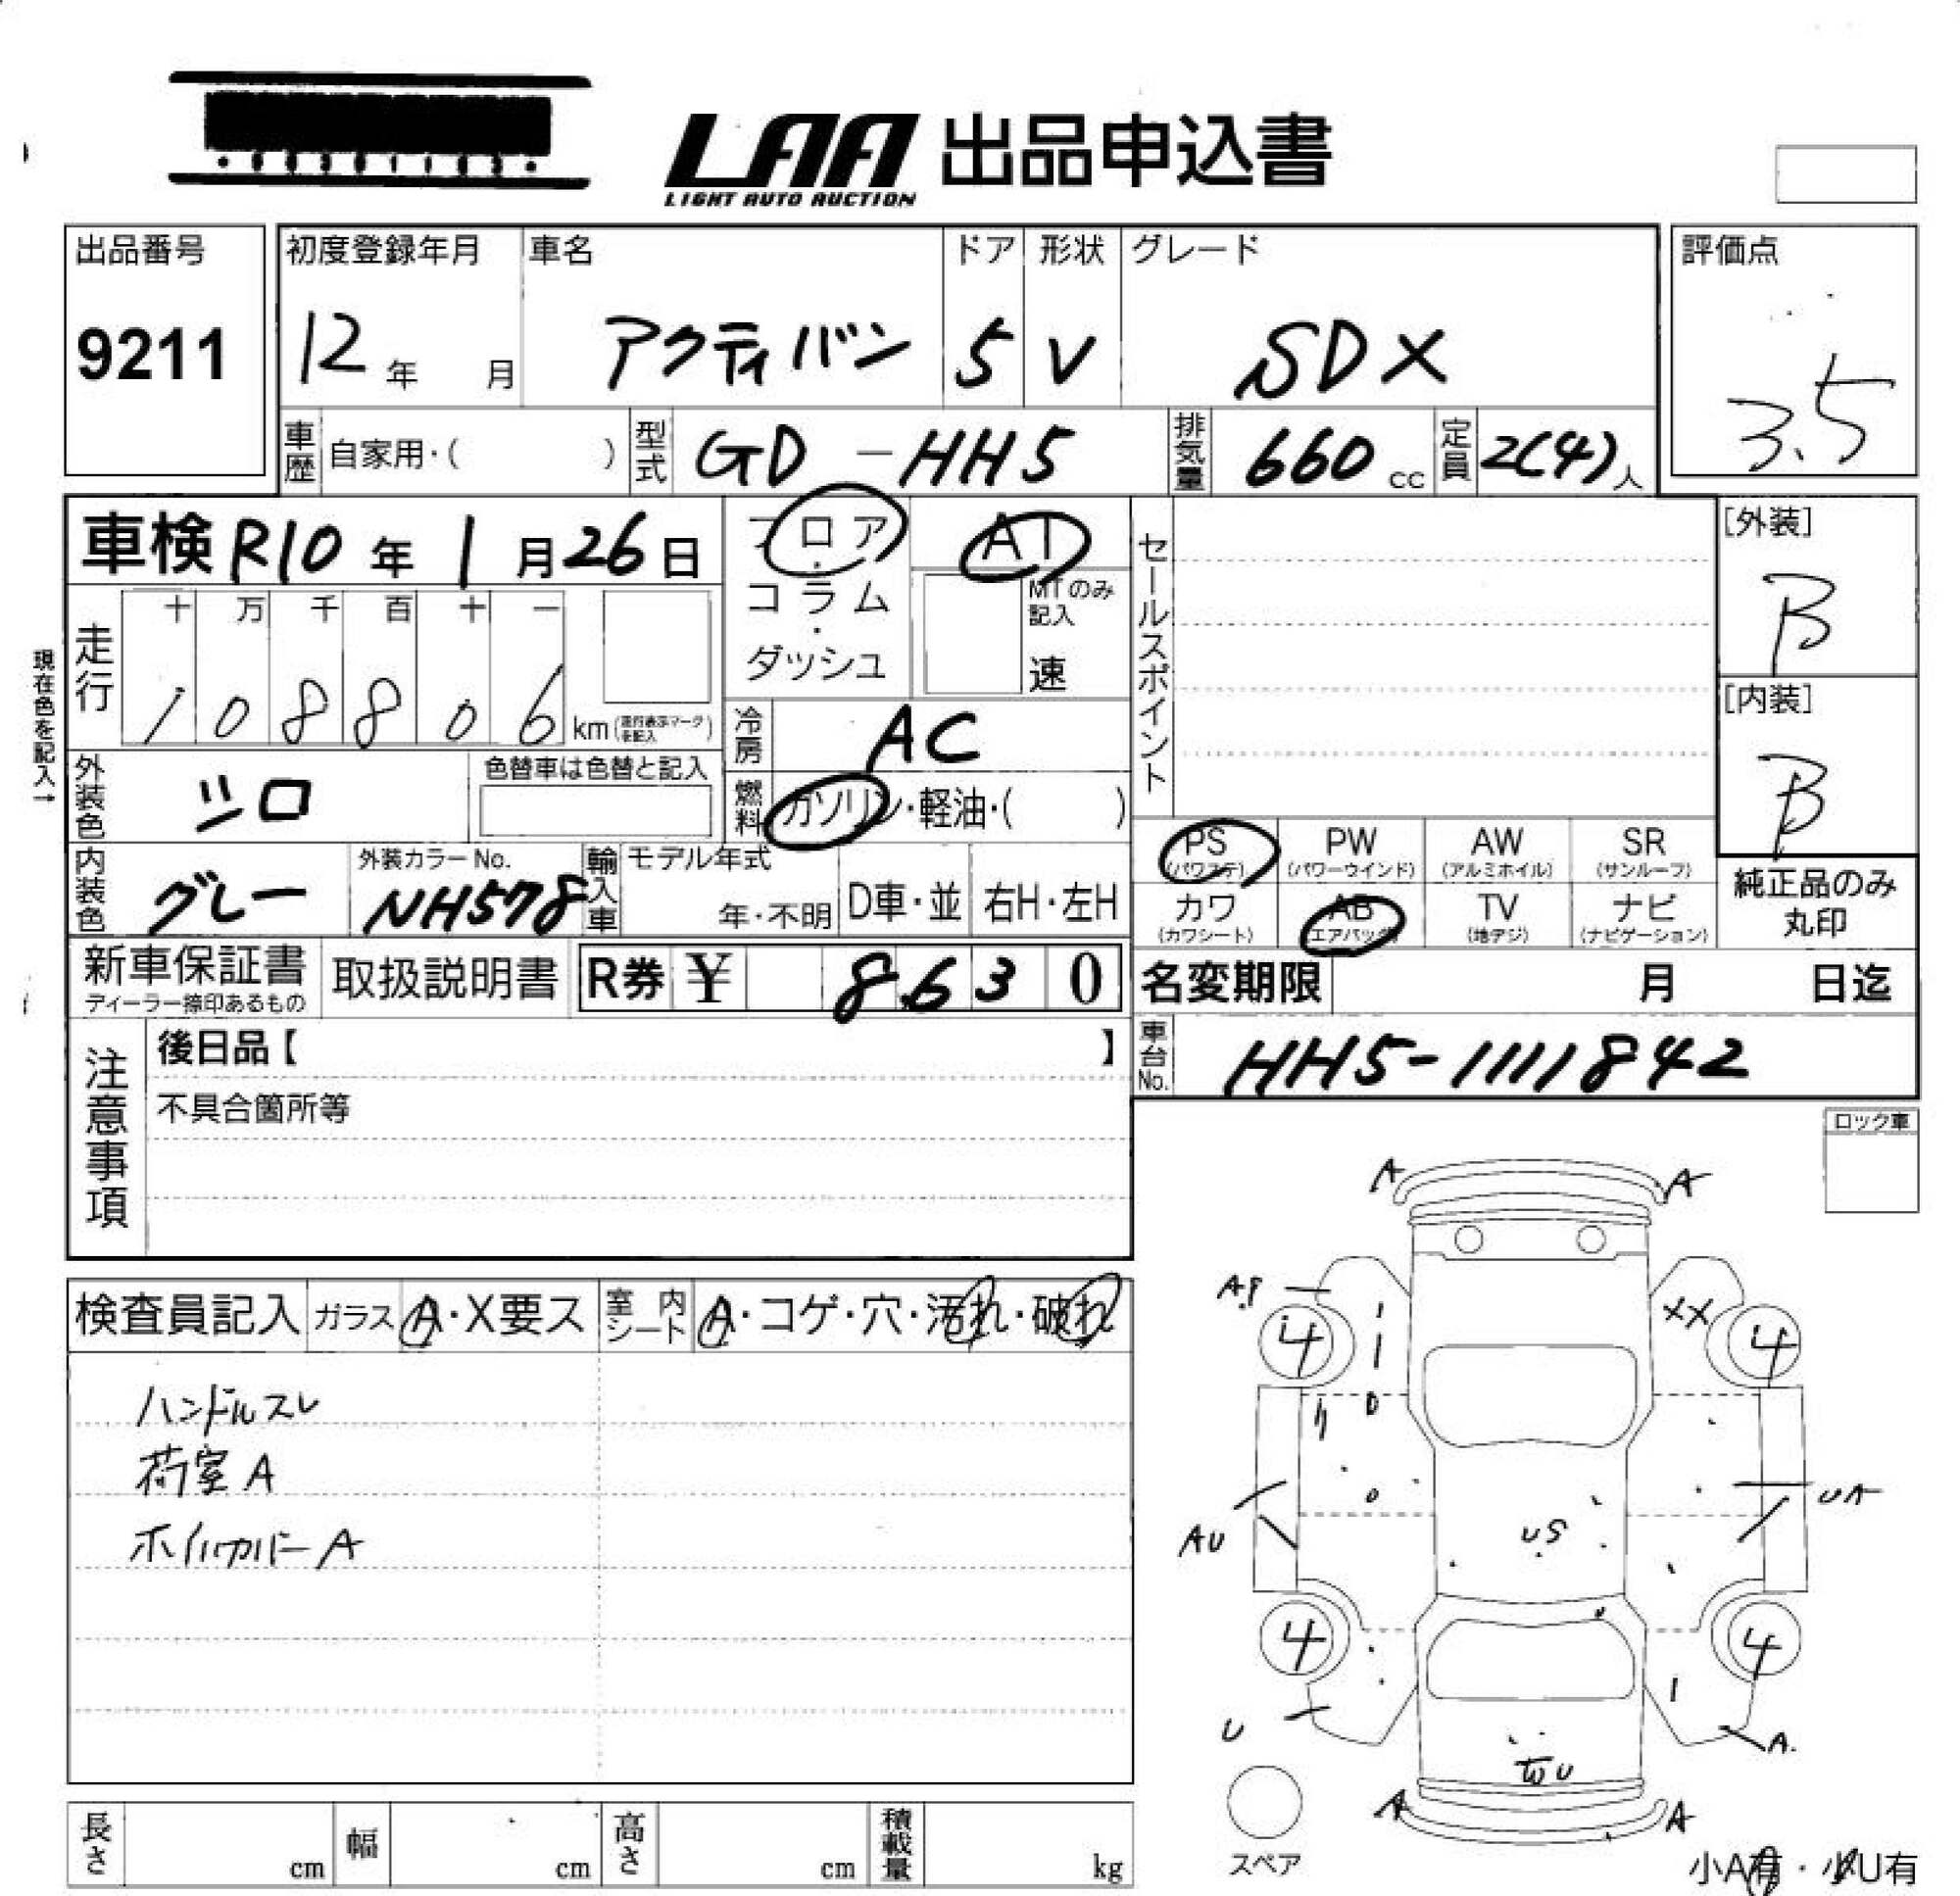 LAA 出品申込書
LIGHT AUTO AUCTION
出品番号
9211
初度登録年月
12年 月
車名
アクティバン
ドア
5
形状
V
グレード
SDX
評価点
3.5
車歴 自家用・( )
型式 GD-HH5
排気量 660cc
定員 2(4)人
車検 R10年1月26日
フロア・コラム・ダッシュ
AT
MTのみ記入
速
セールスポイント
[外装]
B
現在色を記入→
走行
十 万 千 百 十 一
1 0 8 8 0 6 km (走行表示マークを記入)
冷房 AC
[内装]
B
外装色 シロ
色替車は色替と記入
燃料 ガソリン・軽油・( )
内装色 グレー
外装カラーNo.
NH578
輸入車
モデル年式
年・不明
D車・並
右H・左H
PS (パワステ)
PW (パワーウインド)
AW (アルミホイル)
SR (サンルーフ)
カワ (カワシート)
AB (エアバッグ)
TV (地デジ)
ナビ (ナビゲーション)
純正品のみ
丸印
新車保証書
ディーラー捺印あるもの
取扱説明書
R券 ¥ 8630
名変期限 月 日迄
車台No. HH5-1111842
注意事項
後日品【 】
不具合箇所等
ロック車
検査員記入
ガラス A・X要ス
室内シート A・コゲ・穴・汚れ・破れ
ハンドルスレ
荷室A
ホイルカバーA
A A
A.P XX
4 4
AU US UA
4 4
U A.
U
A A
スペア
長さ cm
幅 cm
高さ cm
積載量 kg
小A有・小U有